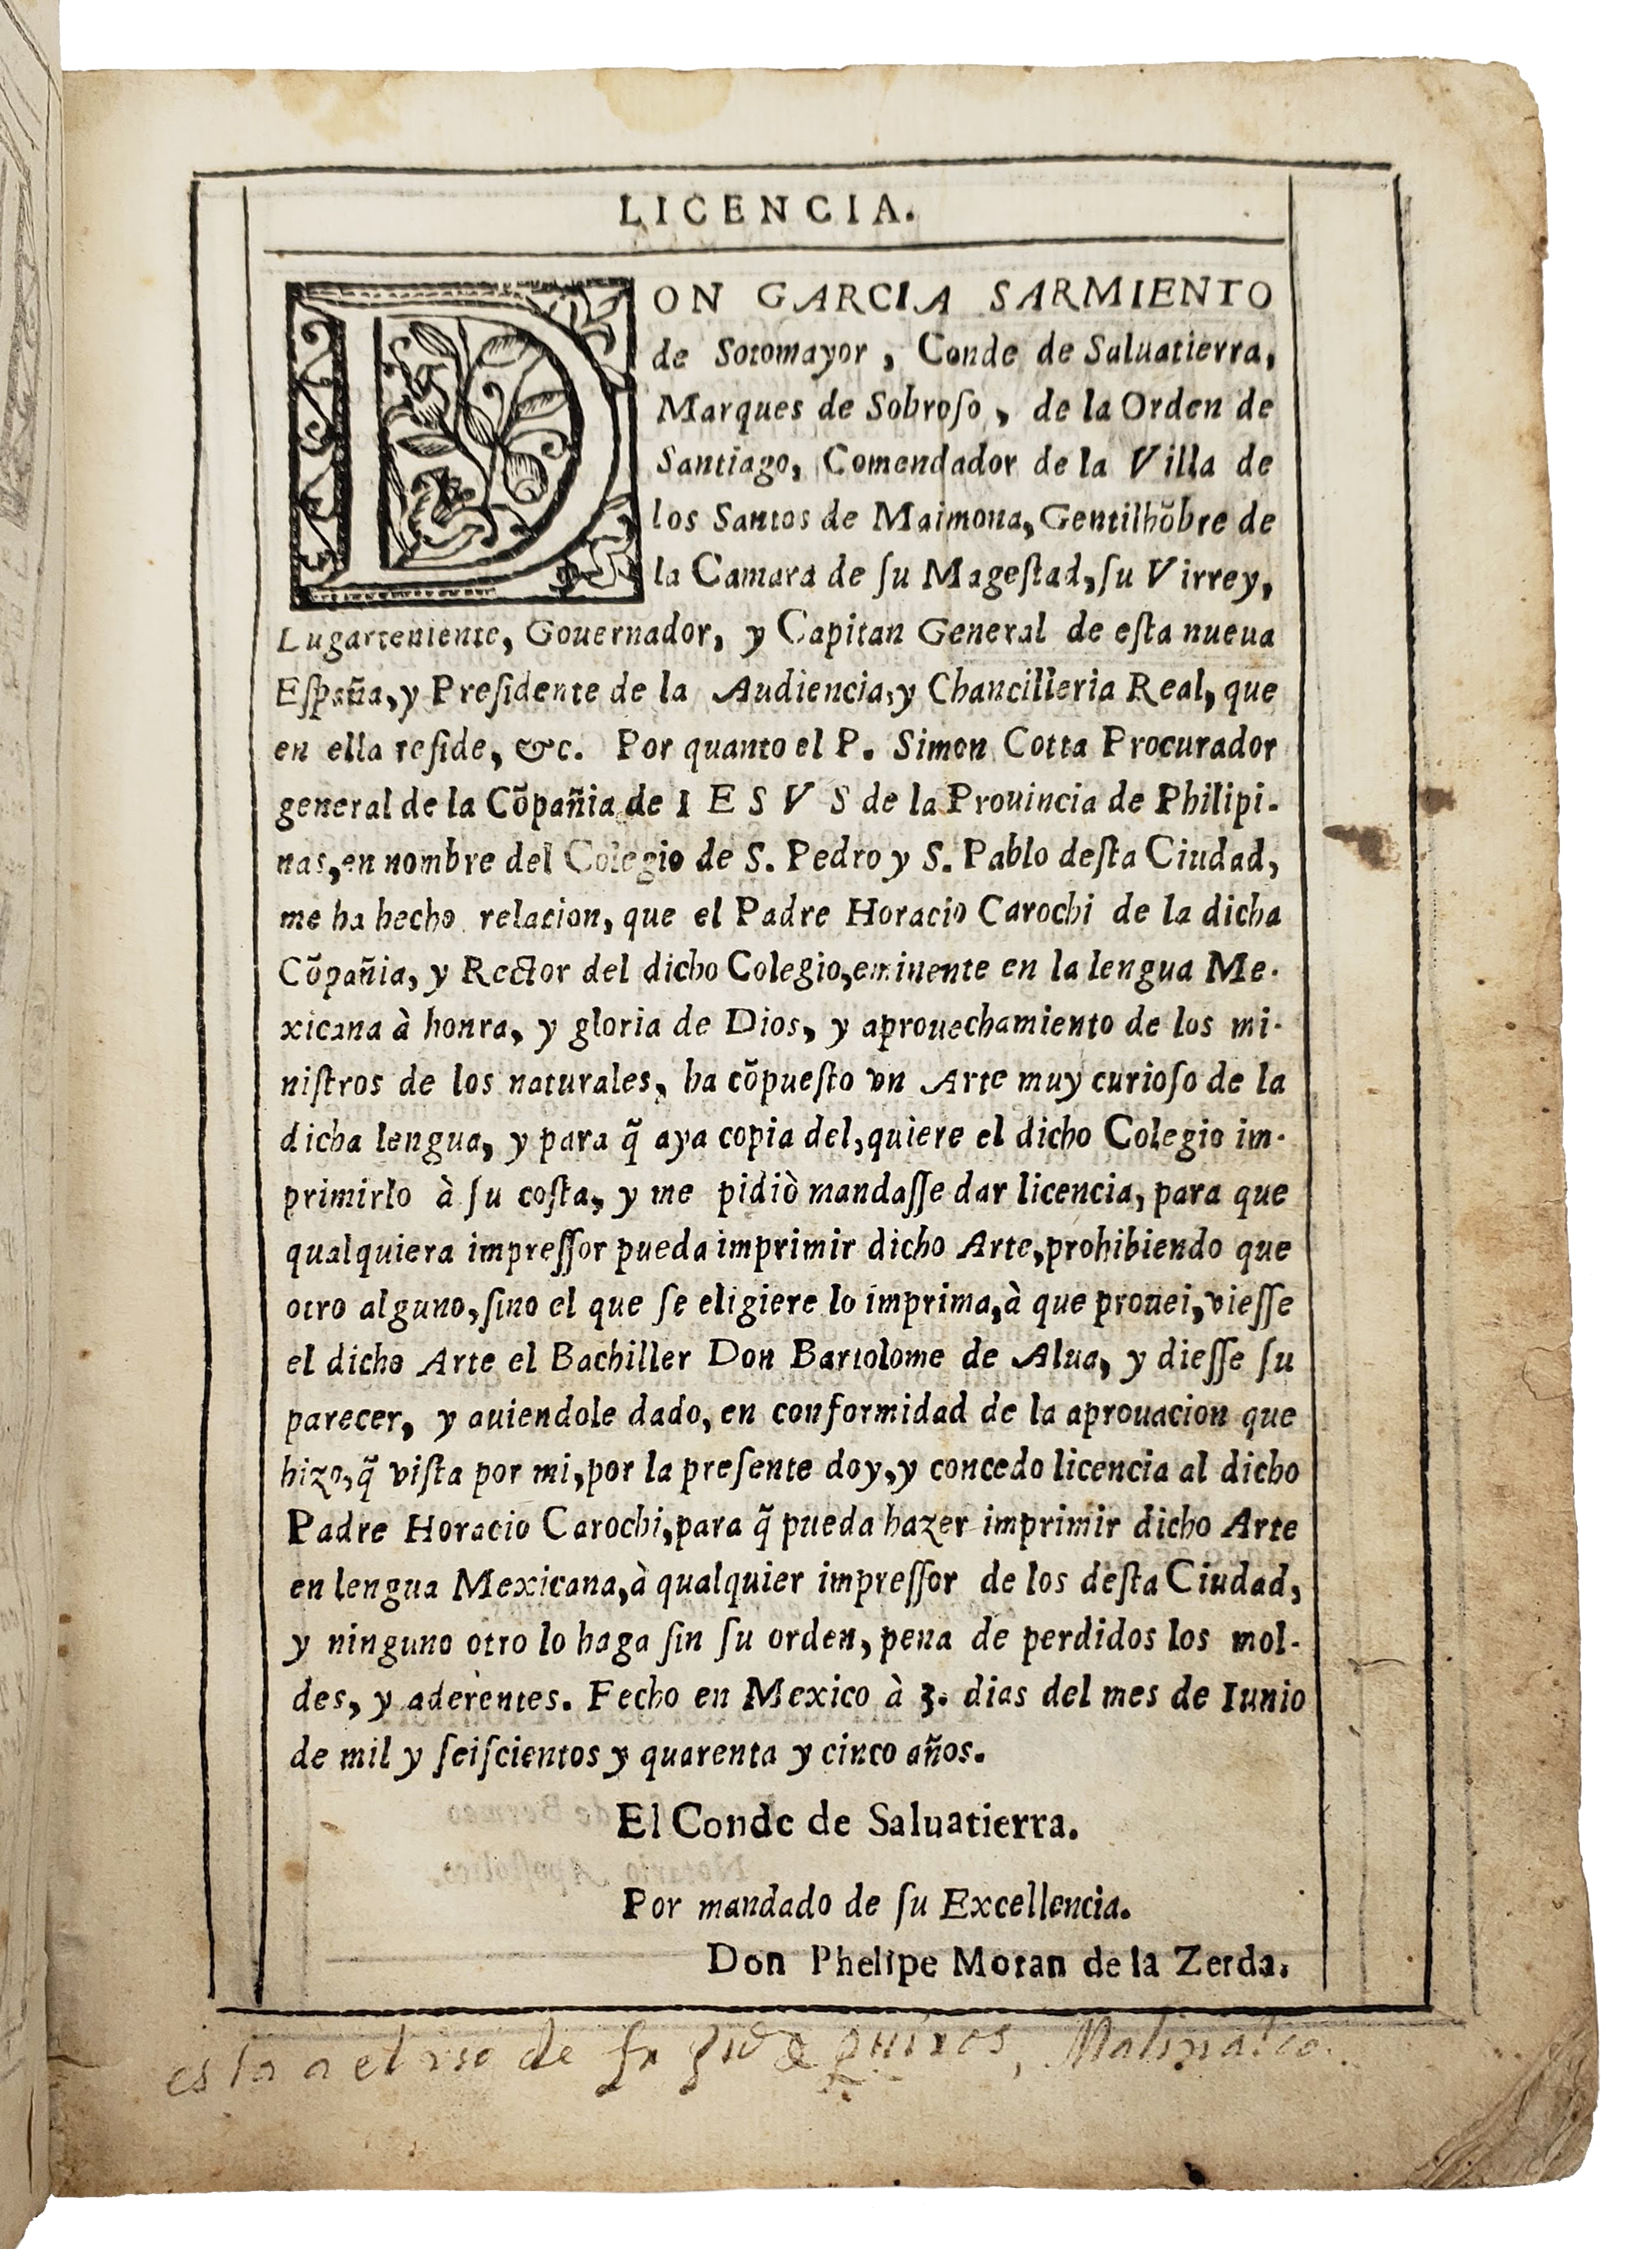 LICENCIA.
DON GARCIA SARMIENTO
de Sotomayor, Conde de Saluatierra,
Marques de Sobroſo, de la Orden de
Santiago, Comendador de la Villa de
los Santos de Maimona, Gentilhõbre de
la Camara de ſu Mageſtad, ſu Virrey,
Lugarteniente, Gouernador, y Capitan General de eſta nueua
Eſpaña, y Preſidente de la Audiencia, y Chancilleria Real, que
en ella reſide, &c. Por quanto el P. Simon Cotta Procurador
general de la Cõpañia de IESVS de la Prouincia de Philipi-
nas, en nombre del Colegio de S. Pedro y S. Pablo deſta Ciudad,
me ha hecho relacion, que el Padre Horacio Carochi de la dicha
Cõpañia, y Rector del dicho Colegio, eminente en la lengua Me-
xicana à honra, y gloria de Dios, y aprouechamiento de los mi-
niſtros de los naturales, ha cõpueſto vn Arte muy curioſo de la
dicha lengua, y para q̃ aya copia del, quiere el dicho Colegio im-
primirlo à ſu coſta, y me pidiò mandaſſe dar licencia, para que
qualquiera impreſſor pueda imprimir dicho Arte, prohibiendo que
otro alguno, ſino el que ſe eligiere lo imprima, à que prouei, vieſſe
el dicho Arte el Bachiller Don Bartolome de Alua, y dieſſe ſu
parecer, y auiendole dado, en conformidad de la aprouacion que
hizo, q̃ viſta por mi, por la preſente doy, y concedo licencia al dicho
Padre Horacio Carochi, para q̃ pueda hazer imprimir dicho Arte
en lengua Mexicana, à qualquier impreſſor de los deſta Ciudad,
y ninguno otro lo haga ſin ſu orden, pena de perdidos los mol-
des, y aderentes. Fecho en Mexico à 3. dias del mes de Iunio
de mil y ſeiſcientos y quarenta y cinco años.
El Conde de Saluatierra.
Por mandado de ſu Excellencia.
Don Phelipe Moran de la Zerda.
esta a el uso de fr de quiros, Malinalco.